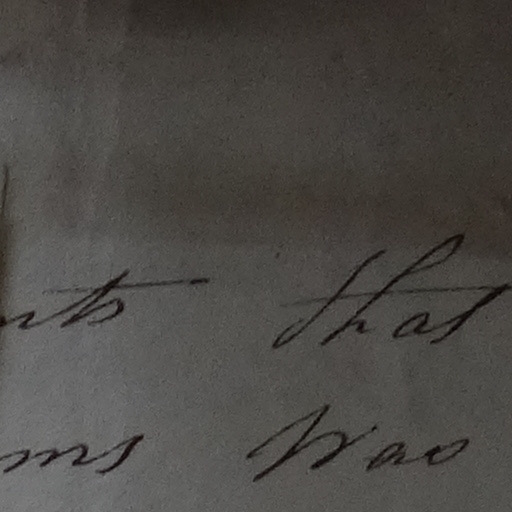 nts that
ms was